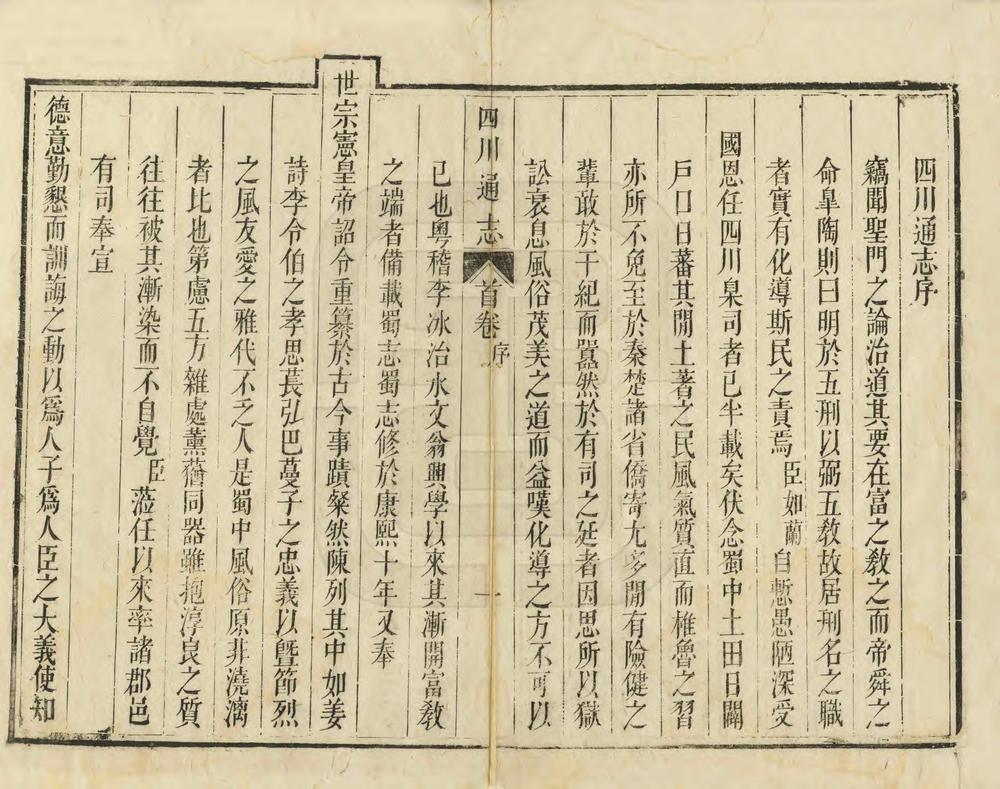 四川通志序
竊聞聖門之論治道其要在富之敎之而帝舜之
命臯陶則曰明於五刑以弼五敎故居刑名之職
者實有化導斯民之責焉臣如蘭自慙愚陋深受
國恩任四川臬司者已半載矣伏念蜀中土田日闢
戸口日蕃其閒土著之民風氣質直而椎魯之習
亦所不免至於秦楚諸省僑寄尤多閒有險健之
輩敢於干紀而囂然於有司之廷者因思所以獄
訟衰息風俗茂美之道而益嘆化導之方不可以
四川通志 首卷 序 一
已也粵稽李冰治水文翁興學以來其漸開富敎
之端者備載蜀志蜀志修於康熙十年又奉
世宗憲皇帝詔令重纂於古今事蹟粲然陳列其中如姜
詩李令伯之孝思萇弘巴蔓子之忠義以曁節烈
之風友愛之雅代不乏人是蜀中風俗原非澆漓
者比也第慮五方雜處薰蕕同器雖抱淳良之質
往往被其漸染而不自覺臣蒞任以來率諸郡邑
有司奉宣
德意勤懇而訓誨之動以爲人子爲人臣之大義使知